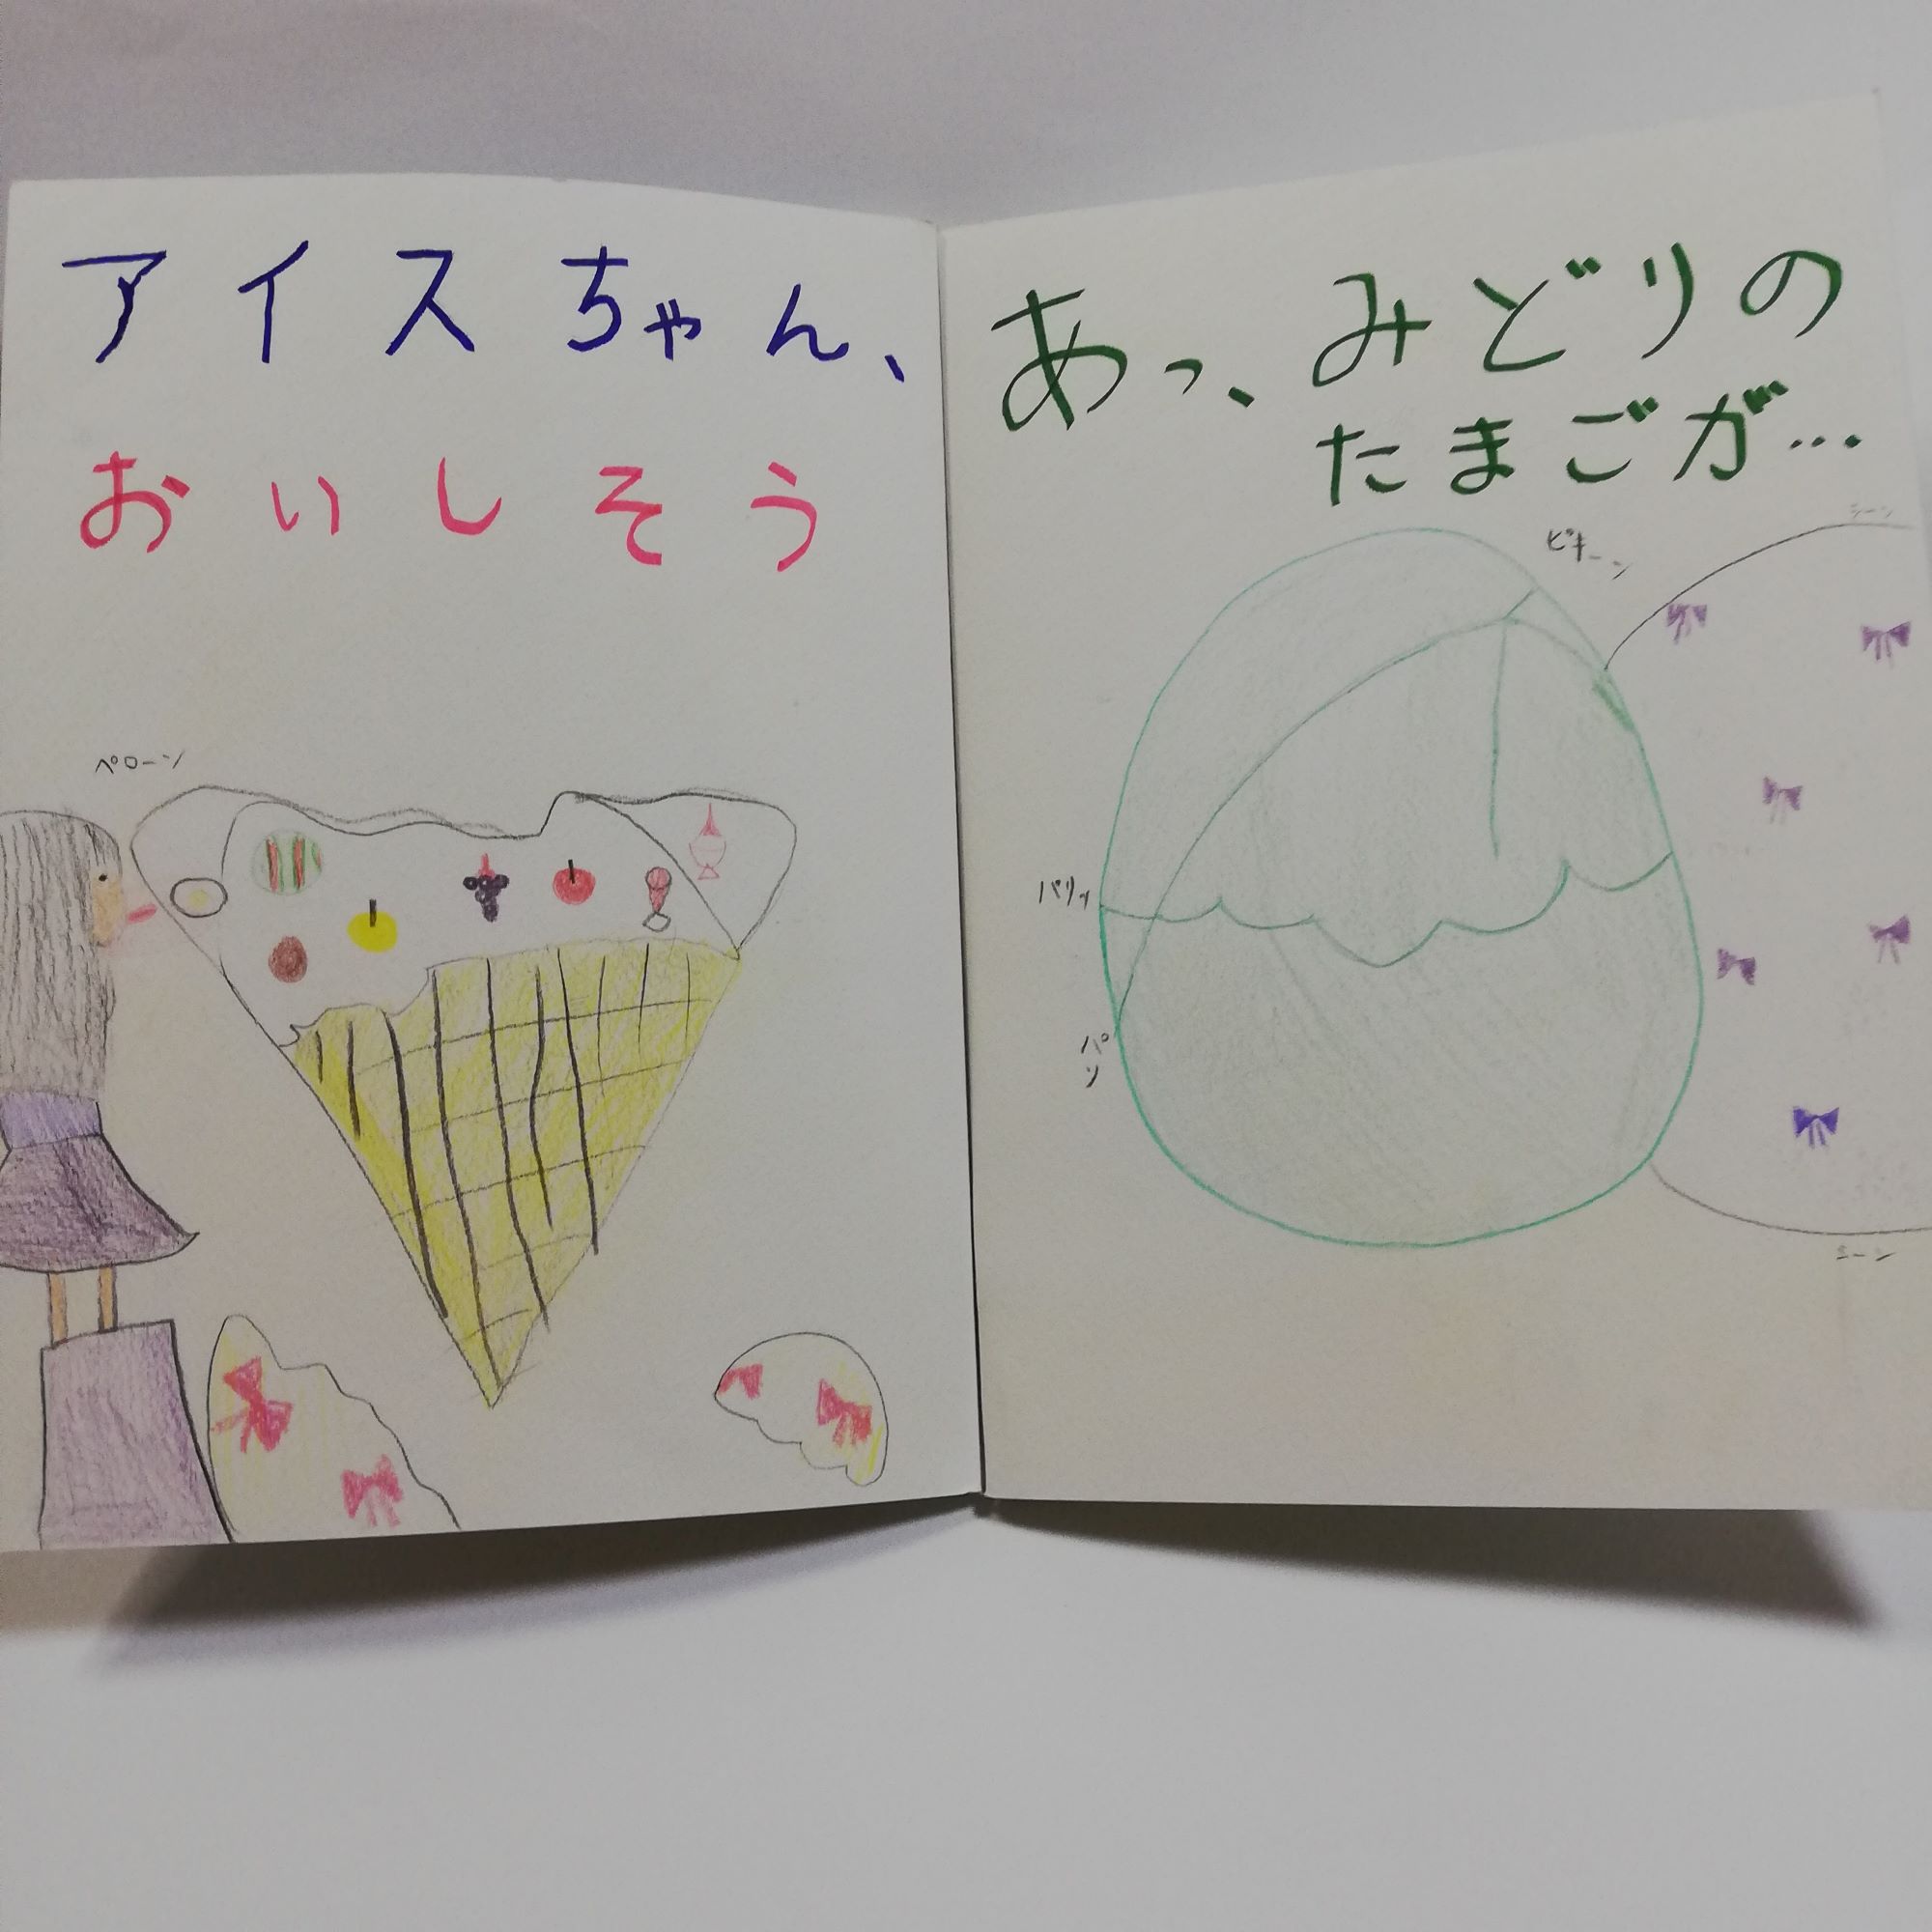 アイスちゃん、
おいしそう
ペローン
あっ、みどりの
たまごが…
ピキーン
シーン
パリッ
パリ
シーン